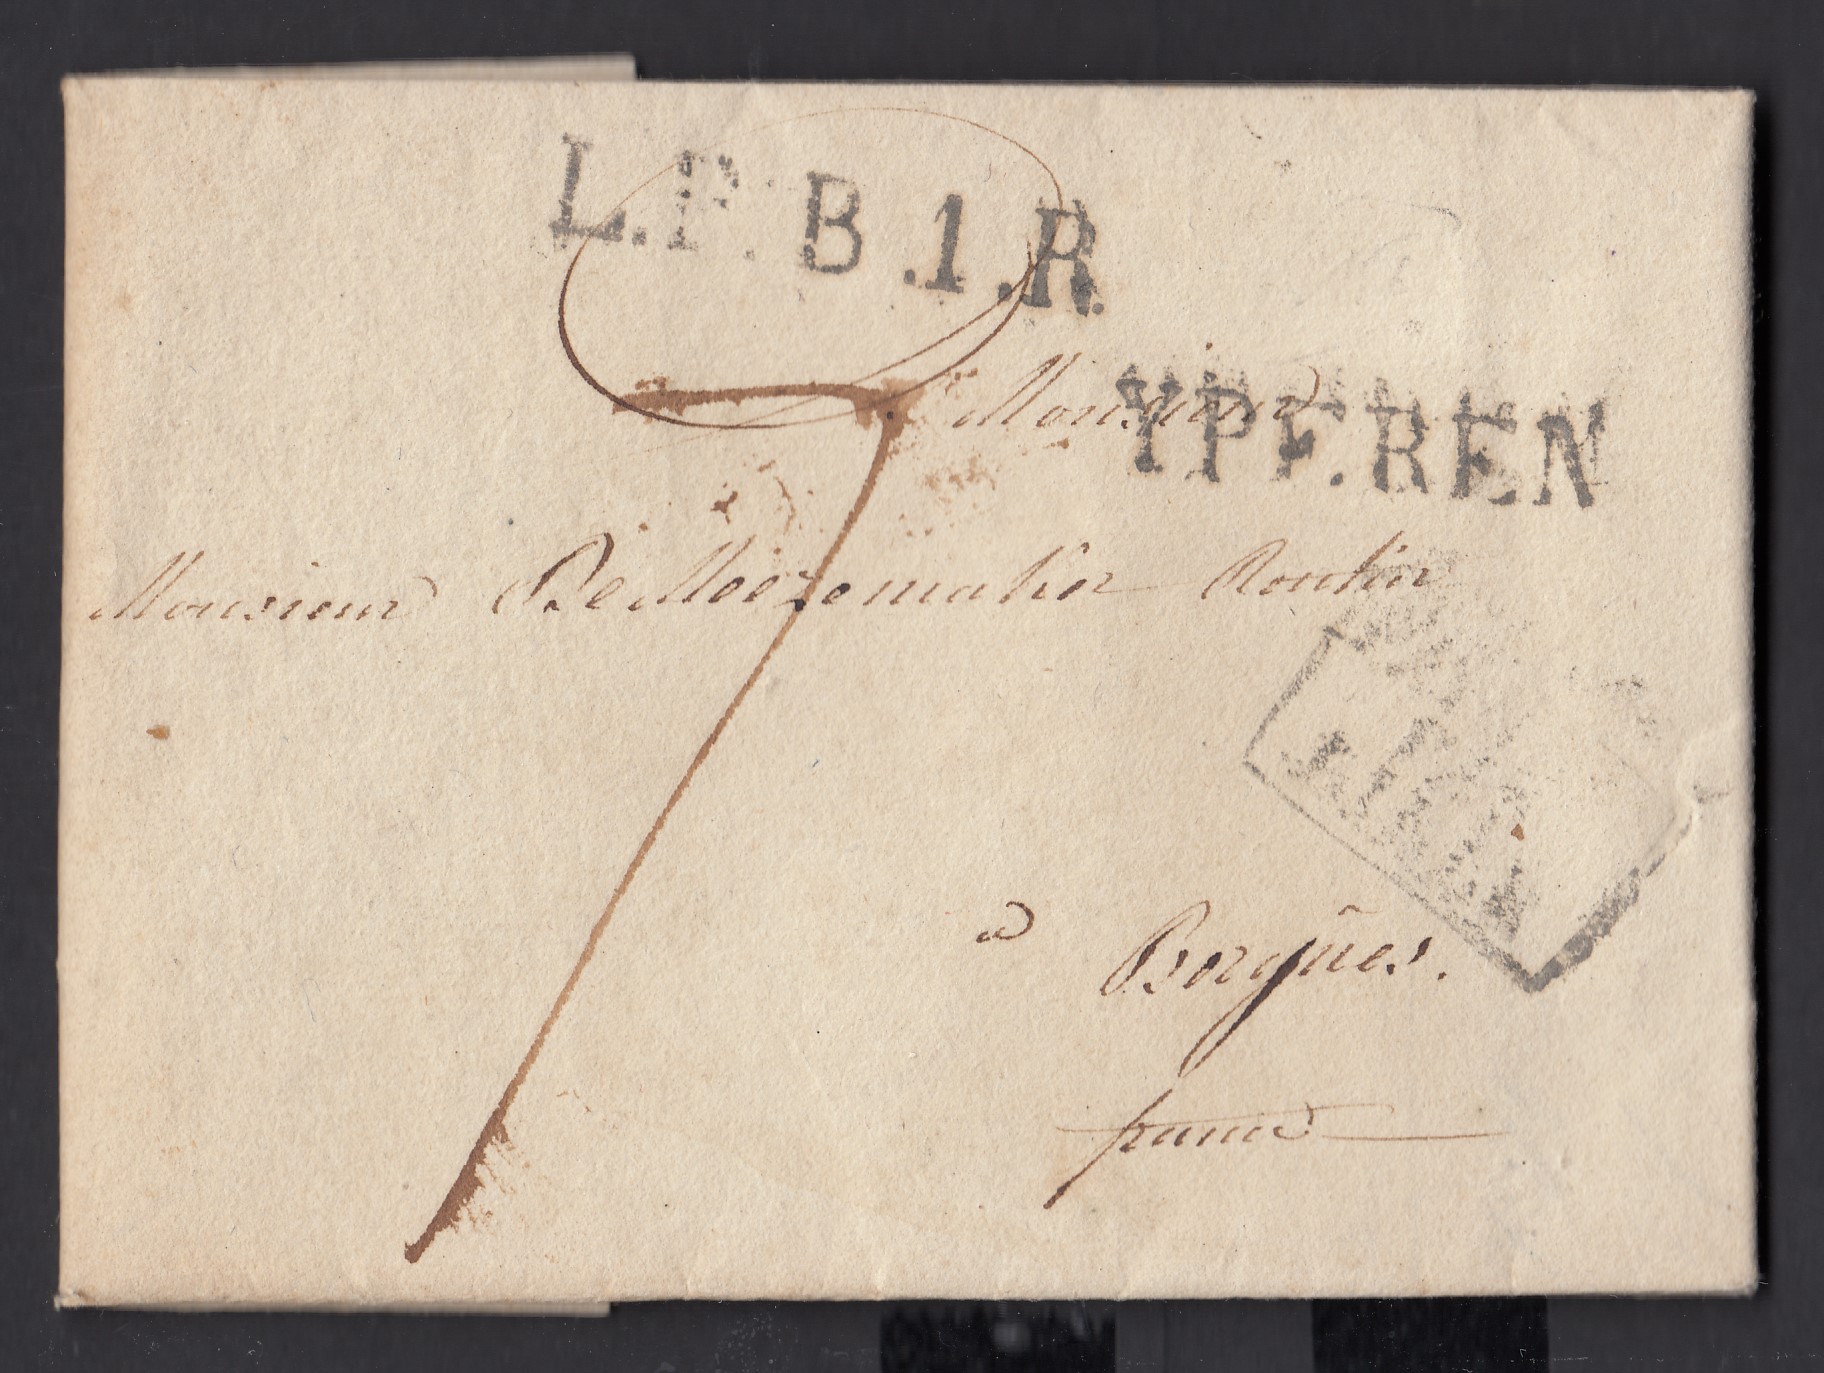 L.P.B.1.R.
YPEREN
Monsieur
Monsieur De Meezemaker
7
a Bergües.
france